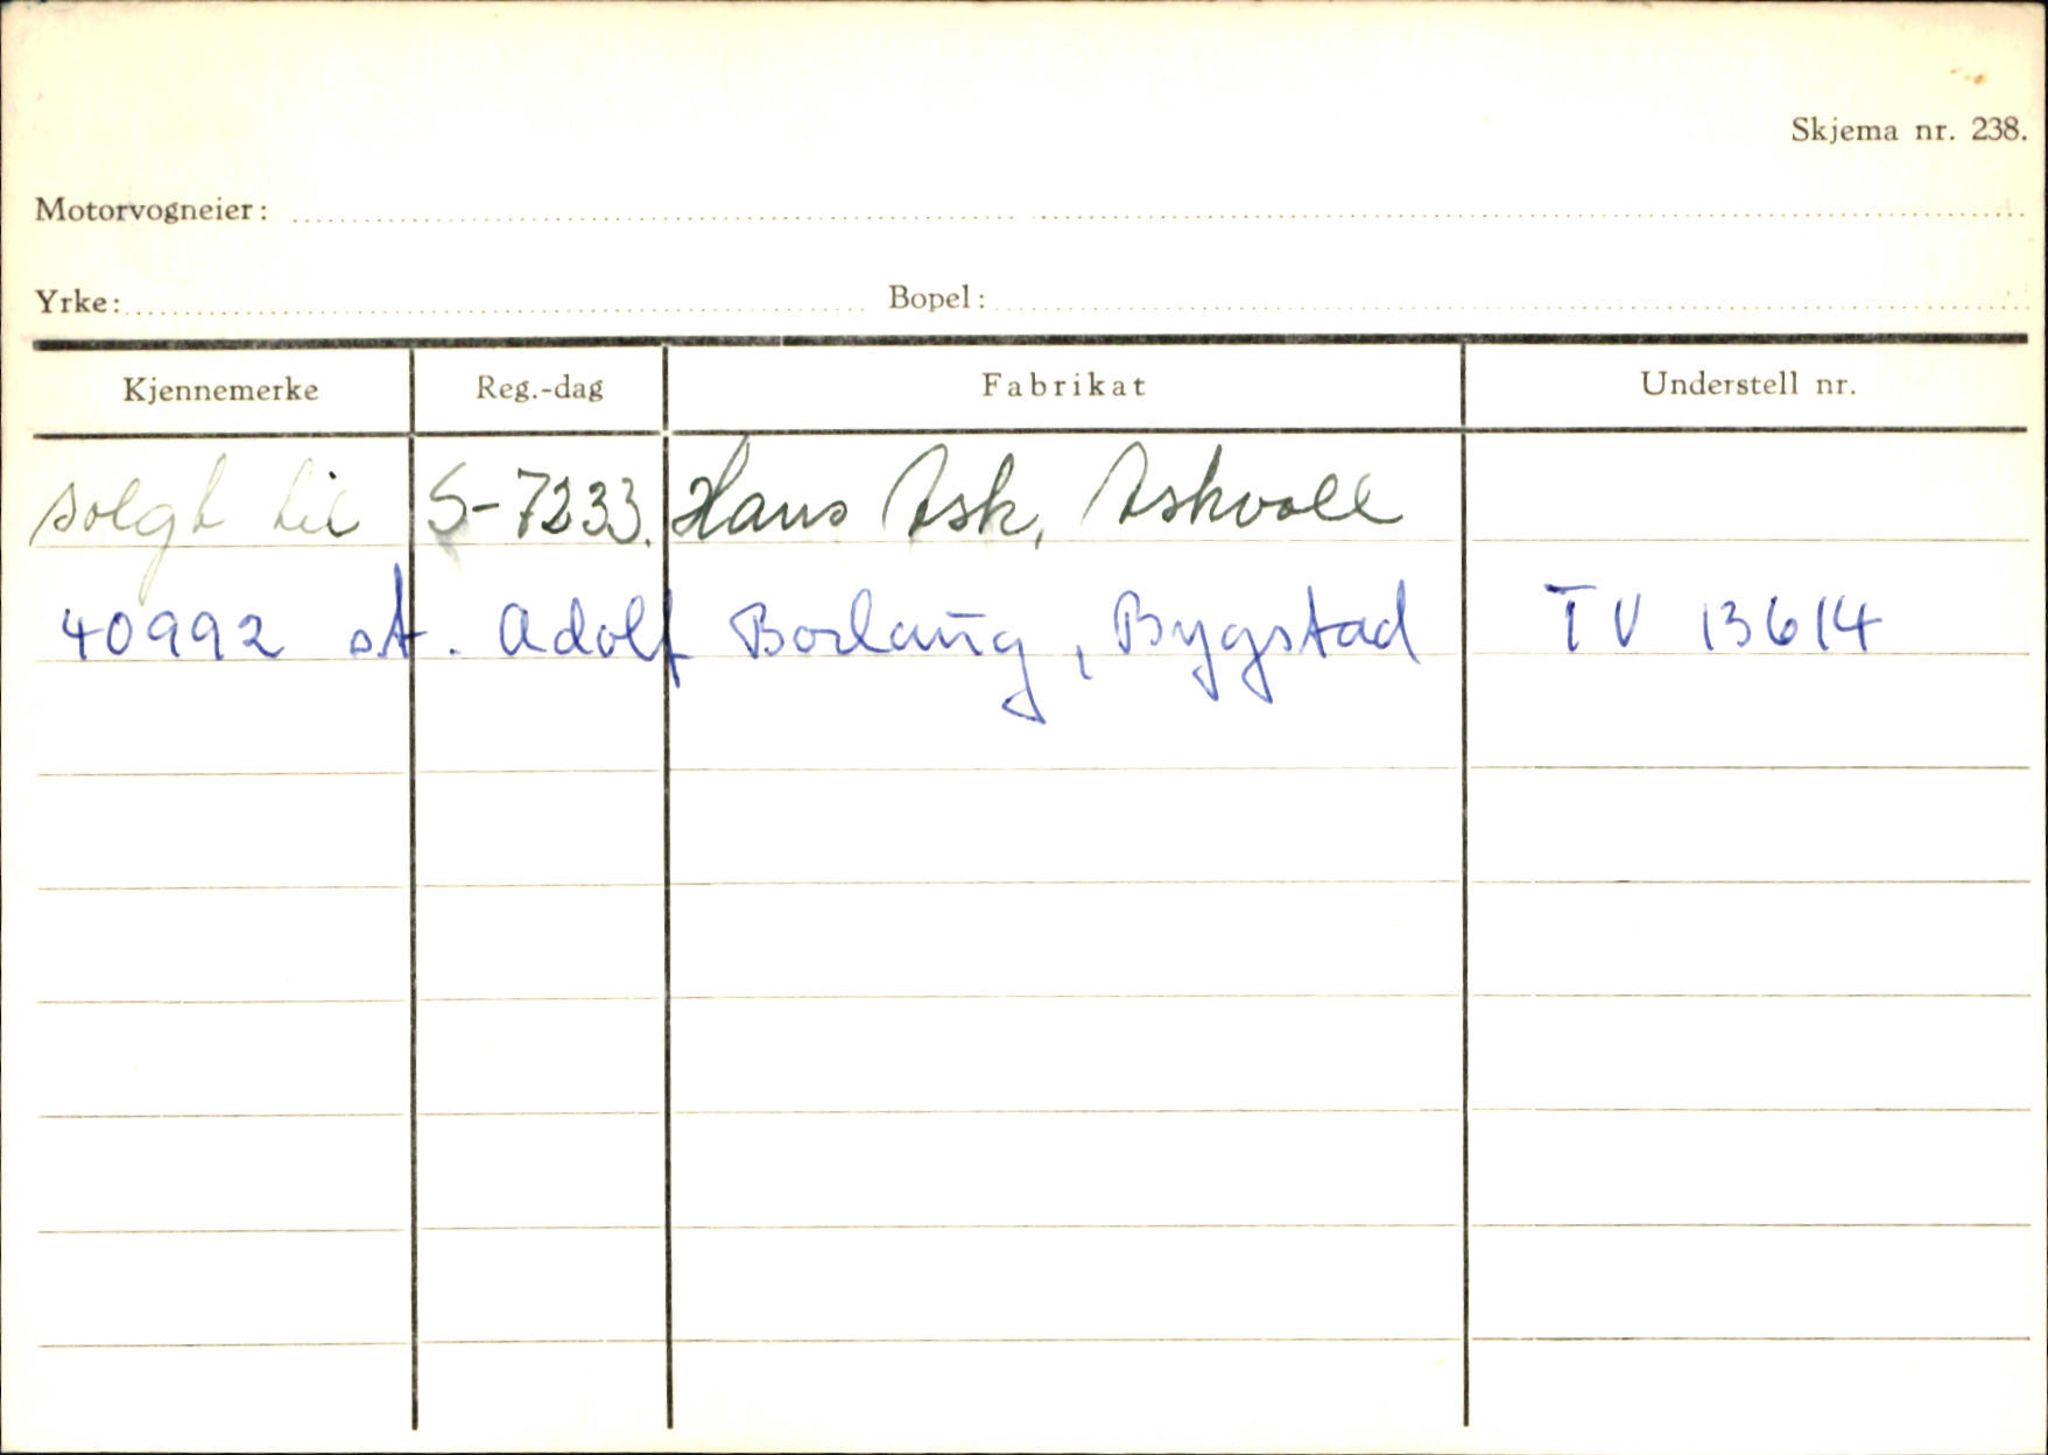 Skjema nr. 238.
Motorvogneier:
Yrke: Bopel:
Kjennemerke Reg.-dag Fabrikat Understell nr.
solgt til S-7233. Hans Ask, Askvoll
40992 st. Adolf Borlaug, Bygstad TV 13614